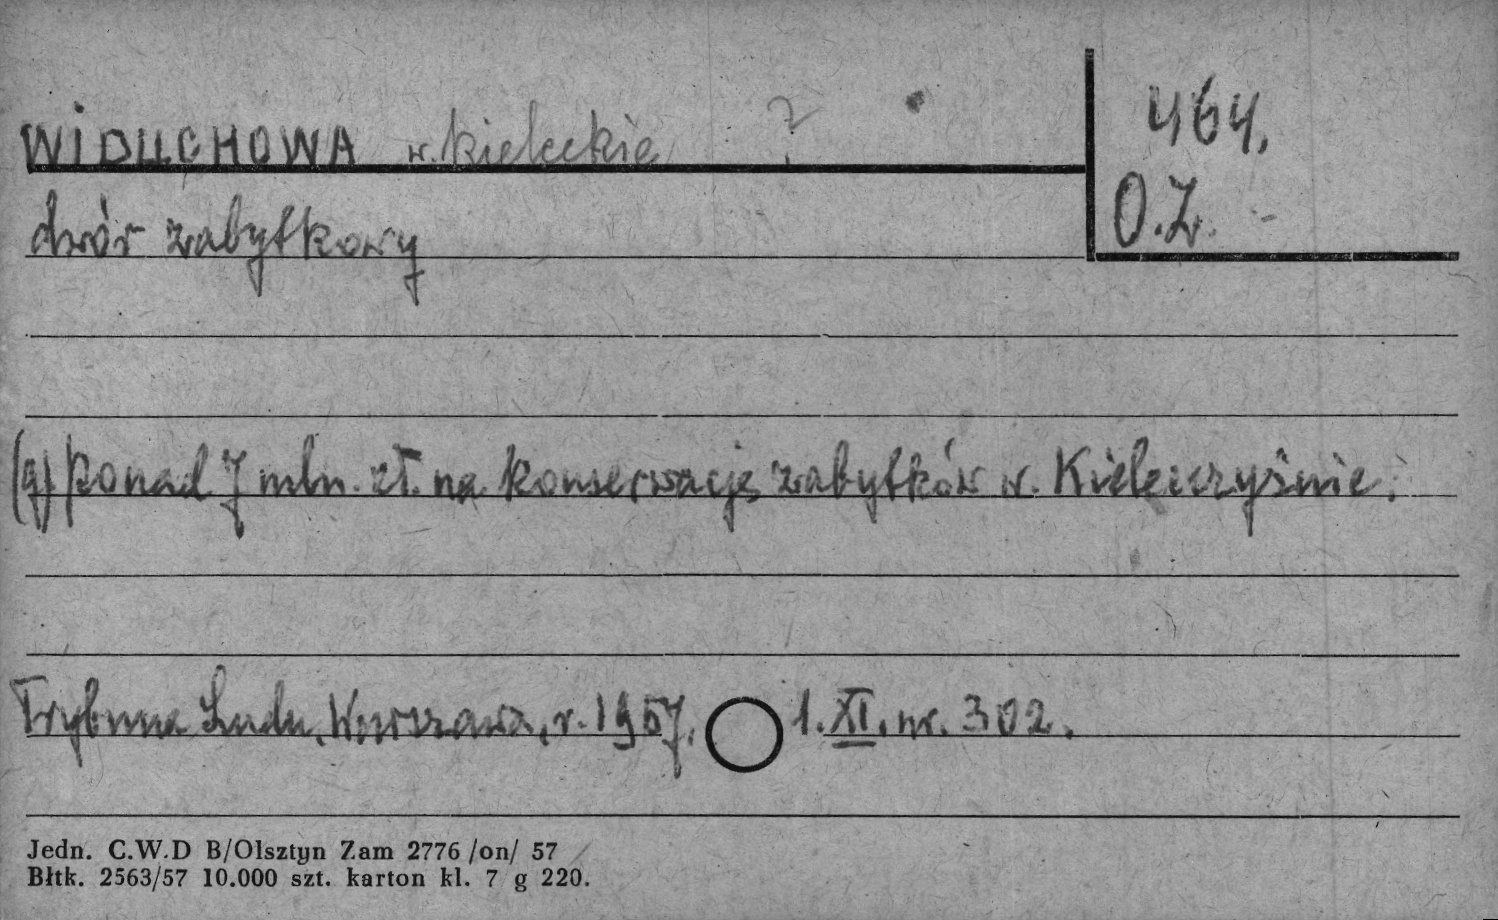 WIDUCHOWA w. kieleckie ?
464.
O.Z.
dwór zabytkowy
(g) Ponad 7 mln. zł. na konserwację zabytków w. Kielecczyźnie.
Trybuna Ludu, Warszawa, r. 1957. 1. XI. nr. 302.
Jedn. C.W.D B/Olsztyn Zam 2776 /on/ 57
Błtk. 2563/57 10.000 szt. karton kl. 7 g 220.